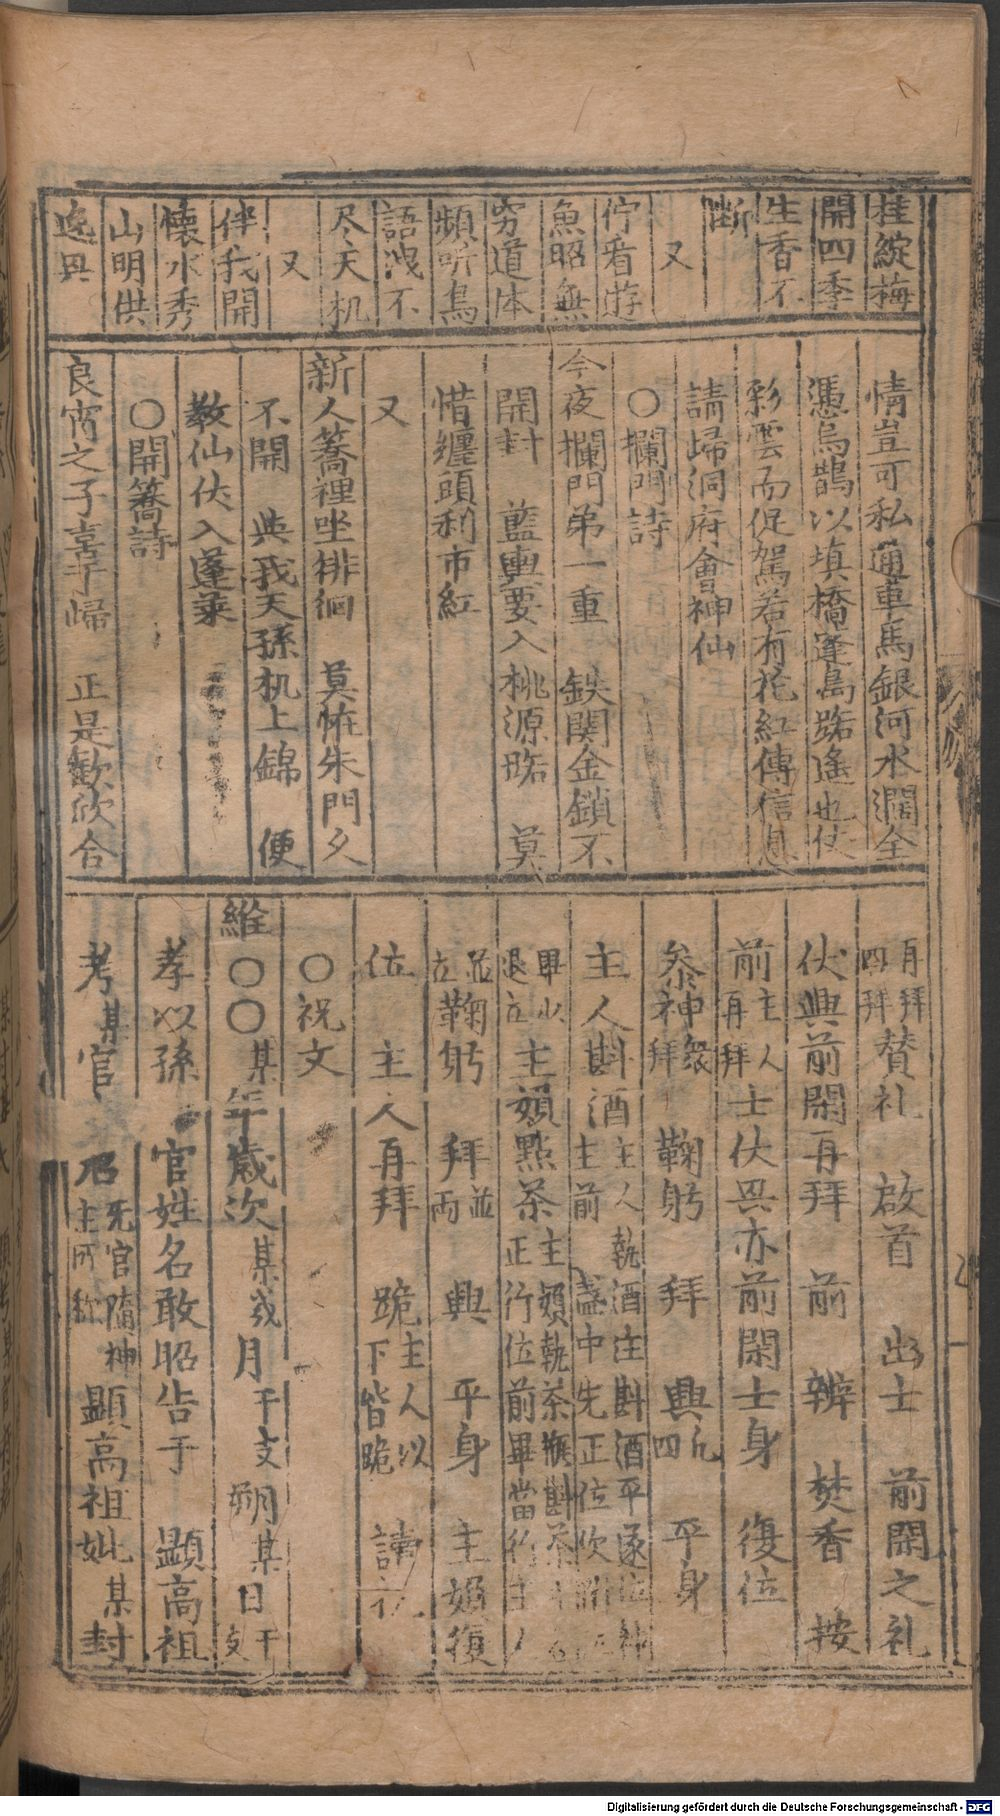 桂綻梅
開四季
生香不
斷
又
佇看游
魚昭無
穷道体
頻听鳥
語洩不
尽天机
又
伴我開
懐水秀
山明供
逸興
情豈可私通車馬銀河水濶全
憑烏鵲以填橋蓬島路遙也伏
彩雲而促駕若有花紅傳信息
請歸洞府會神仙
〇攔門詩
今夜攔門弟一重 鉄関金鎖不
開封 藍輿要入桃源路 莫
惜纏頭利市紅
又
新人蕎裡坐徘徊 莫恠朱門久
不開 與我天孫机上錦 便
教仙伏入蓬莱
〇開蕎詩
良宵之子喜于歸 正是歓欣合
再拜四拜賛礼 啟首 出士 前閑之礼
伏興前閑再拜 前 辨 焚香 按
前主人再拜士伏興亦前閑士身 復位
叅神衆拜 鞠躬 拜 興凡四 平身
主人斟酒主人執酒注斟酒平逐位神主前盞中先正位次
畢少退立主嫂點茶主嫂執茶瓶斟茶正行位前畢當行主人
並立鞠躬 拜並両 興 平身 主嫂復
位 主人再拜 跪主人以下皆跪 讀祝
〇祝文
維〇〇某年歳次某戈月干支朔某日干支
孝以孫 官姓名敢昭告于 顯高祖
考某官 君死官隨神主所称 顯高祖妣某封
Digitalisierung gefördert durch die Deutsche Forschungsgemeinschaft - DFG